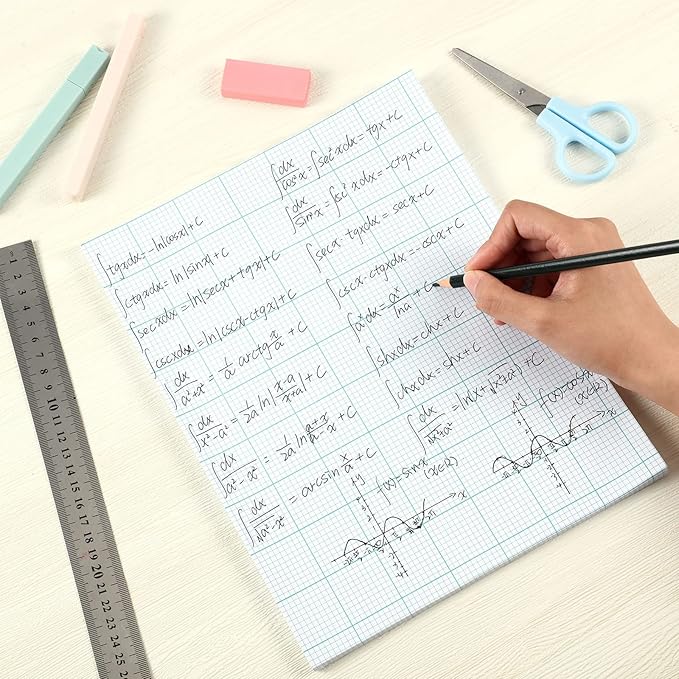 ∫tgxdx=-ln|cosx|+C
∫ctgxdx=ln|sinx|+C
∫secxdx=ln|secx+tgx|+C
∫cscxdx=ln|cscx-ctgx|+C
∫dx/(a²+x²)=1/a arctg x/a+C
∫dx/(x²-a²)=1/2a ln|x-a/x+a|+C
∫dx/(a²-x²)=1/2a ln a+x/a-x+C
∫dx/√(a²-x²)=arcsin x/a+C
∫dx/cos²x=∫sec²xdx=tgx+C
∫dx/sin²x=∫sc²xdx=-ctgx+C
∫secx·tgxdx=secx+C
∫cscx·ctgxdx=-cscx+C
∫aˣdx=aˣ/lna+C
∫shxdx=chx+C
∫chxdx=shx+C
f(x)=sinx
(x∈R)
y
x
f(x)=cosx
(x∈R)
y
x
1 2 3 4 5 6 7 8 9 10 11 12 13 14 15 16 17 18 19 20 21 22 23 24 25